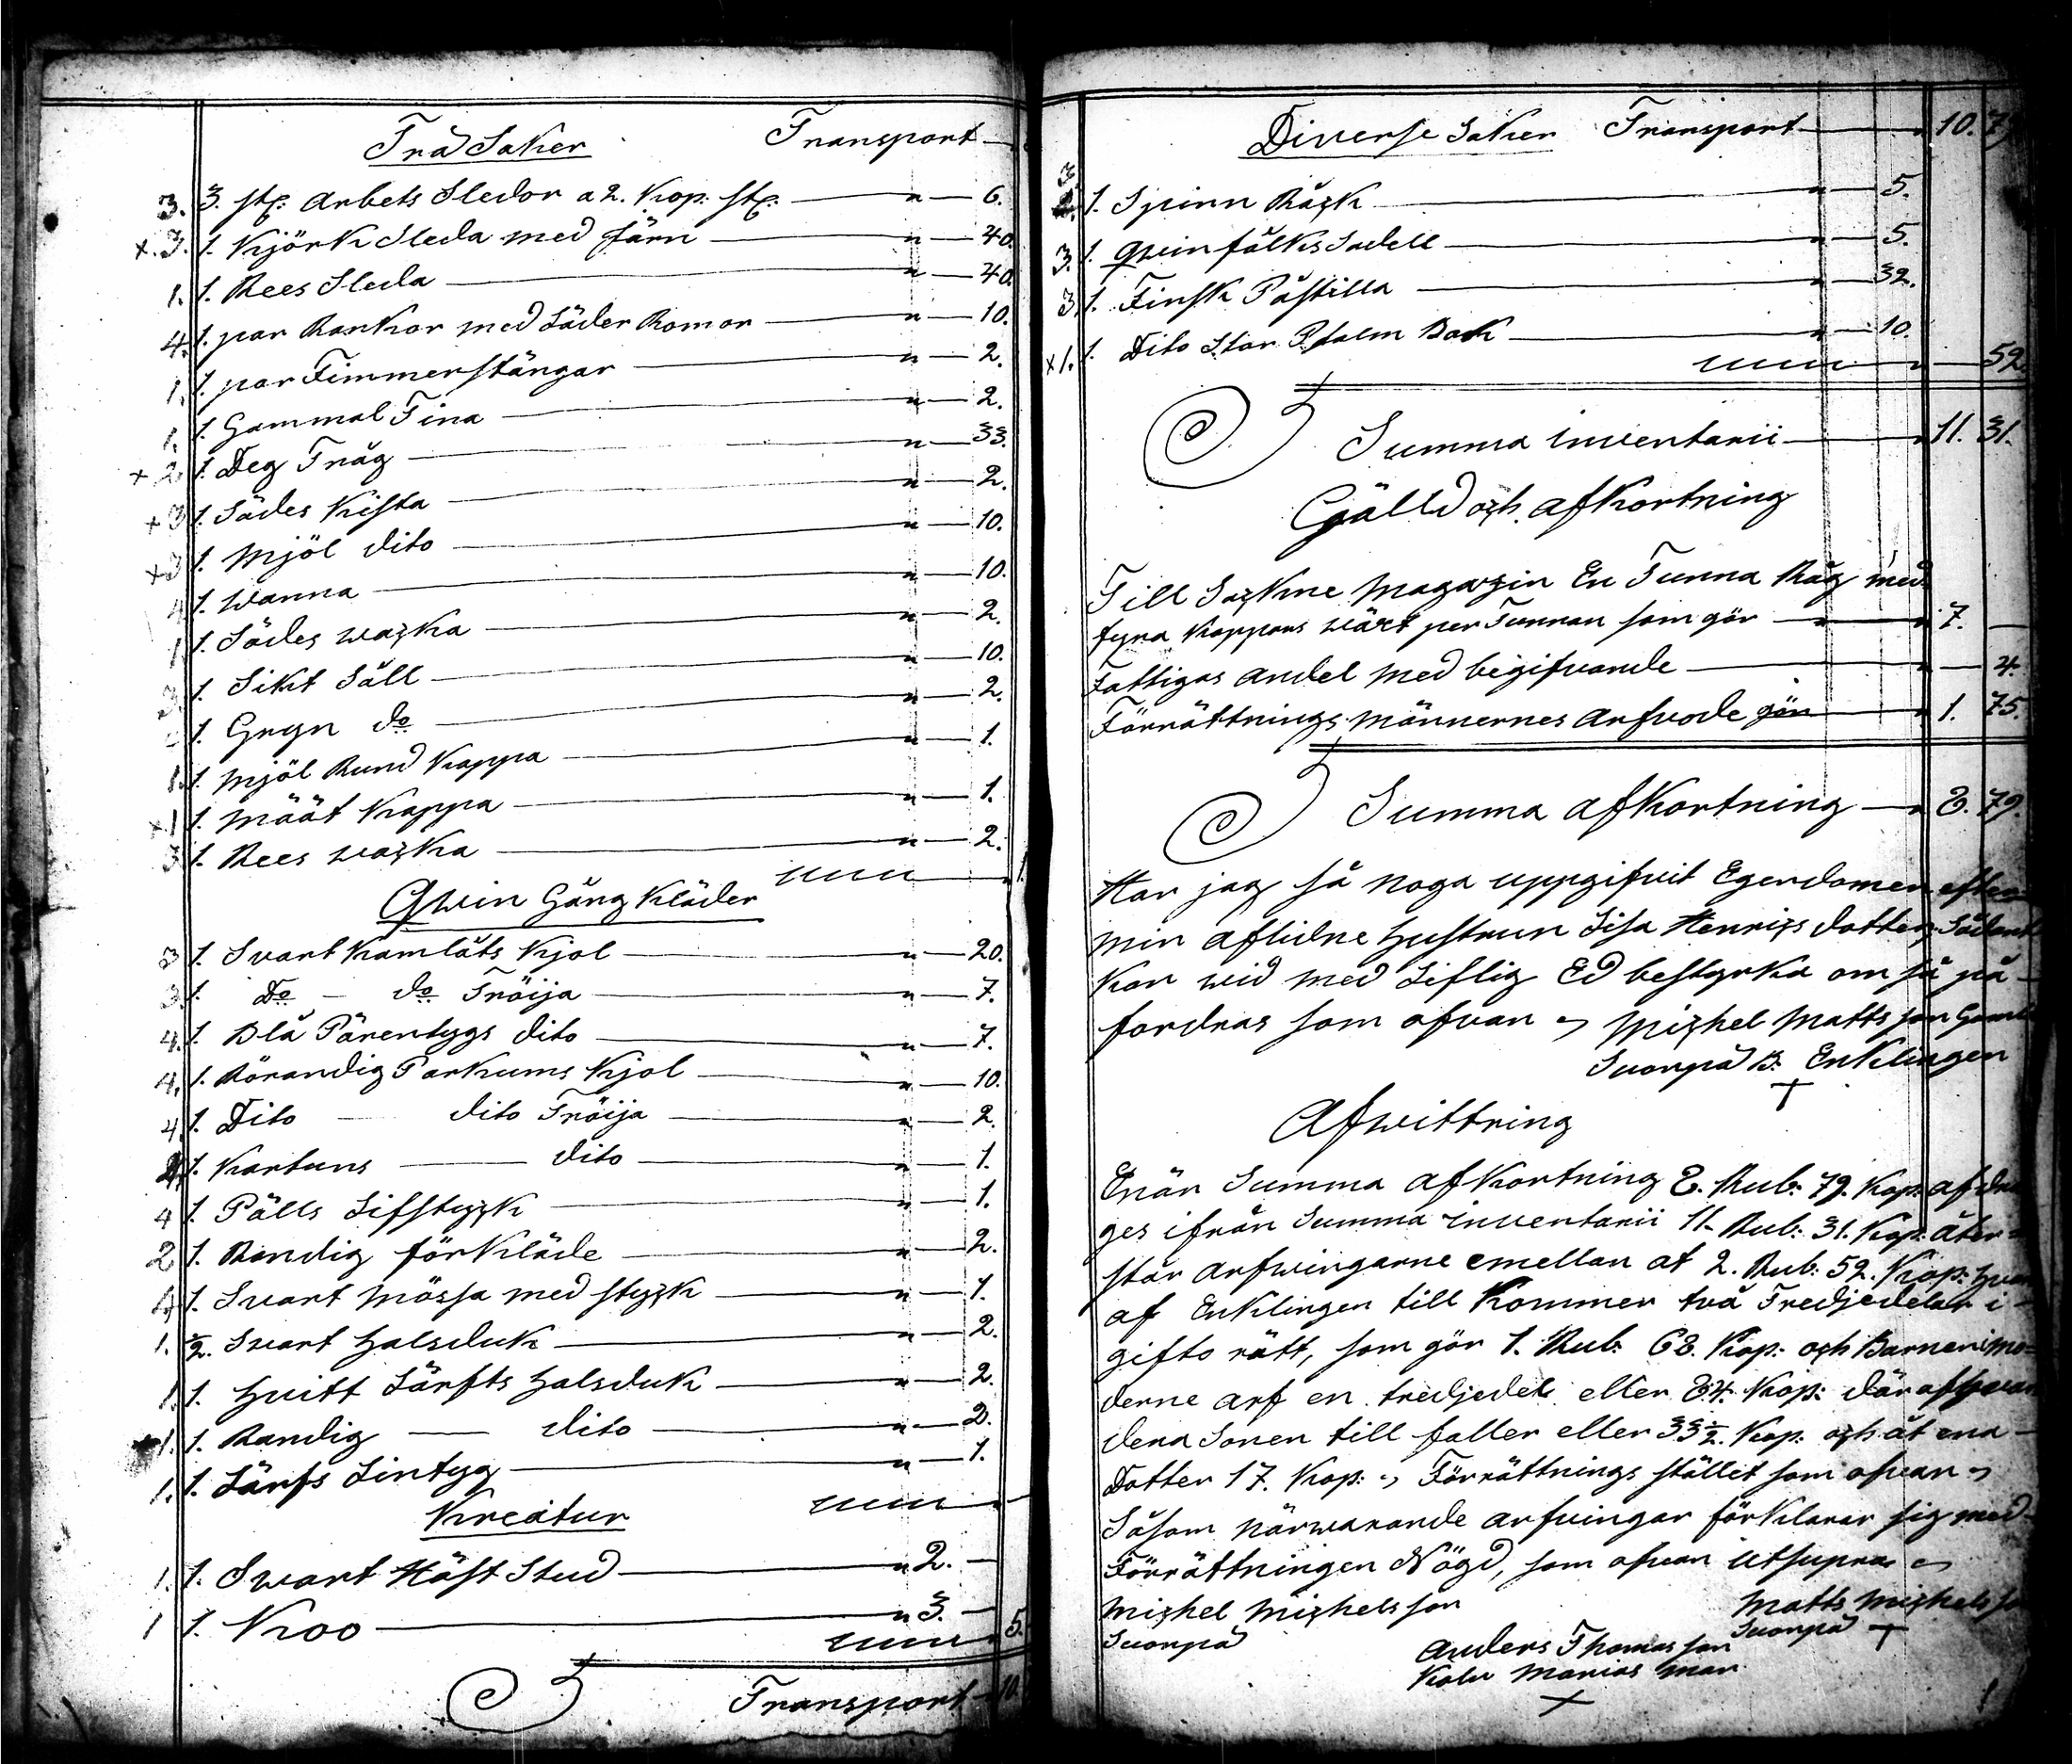 Trä Saker Transport
3. 3. st: Arbets Sledor a 2. Kop: st: " 6.
x. 3. 1. Kjörk Sleda med Järn " 40.
1. 1. Rees Sleda " 40.
4. 1. par Rankor med Läder Romor " 10.
1. 1. par Timmerstängar " 2.
1. 1. Gammal Tina " 2.
x 2 1. Deg Tråg " 33.
x 3 1. Sädes Kista " 2.
x 3 1. Mjöl dito " 10.
4 1. Wanna " 10.
1 1. Sädes wacka " 2.
3. 1. Sikt Såll " 10.
1. Gryn do " 2.
1. 1. Mjöl Rund Kappa " 1.
x 1 1. Määt Kappa " 1.
3 1. Rees wacka " 2.
Qwin Gång Kläder
3 1. Svart Kamlåts Kjol " 20.
3. 1. Do do Tröija " 7.
4. 1. Blå Pärentygs dito " 7.
4. 1. Rörandig Parkums Kjol " 10.
4. 1. Dito dito Tröija " 2.
4. 1. Kartuns dito " 1.
4 1. Pälls Lifstyck " 1.
2 1. Randig förkläde " 2.
4. 1. Svart Mössa med styck " 1.
1. ½. Svart Halsduk " 2.
1. 1. Hvitt Lärfts Halsduk " 2.
1. 1. Randig dito " 2.
1. 1. Lärfs Lintyg " 1.
Kreatur
1. 1. Swart Häst Stud " 2. —
1 1. Koo " 3. —
5.
Transport 10.
Diverse Saker Transport 10. 79
3. 1. Spinn Råck " 5.
3. 1. Qwinfålks Sadell " 5.
3 1. Finsk Påstilla " 32.
x 1. 1. Dito Stor Psalm Bok " 10.
" 52
Summa inventarii " 11. 31.
Gälld och afkortning
Till Sockne Magazin En Tunna Råg med
fyra Kappars wäxt per Tunnan som gör " 7. —
Fattigas andel med begifvande " — 4.
Förrättnings männernes arfvode gör " 1. 75.
Summa afkortning " 8. 79.
Har jag så noga uppgifvit Egendomen efter
min aflidne hustrun Lisa Henrics dotter, Sådant
kan wid med Liflig Ed bestyrka om så på-
fordras som ofvan Michel Matts son Gamla
Suonpä B. Enklingen
+
Afwittring
Enär Summa afkortning 8. Rub: 79. Kop: afdra
ges ifrån Summa inventarii 11. Rub: 31. Kop: åter-
står arfwingarne emellan at 2. Rub: 52. Kop: hvar
af Enklingen till kommer två Tredjedelar i
gifto rätt, som gör 1. Rub. 68. Kop: och Barnen i mo-
derne arf en tredjedel eller 84. Kop: där af hvar
dera Sonen till faller eller 33½. Kop. och åt ena
Dotter 17. Kop: Förrättnings stället som ofvan
Såsom närwarande arfvingar förklarar sig med
Förrättningen Nögd, som ofvan utsupra
Michel Michels son Matts Michels so
Suonpä Suonpä +
Anders Thomas son
Kalu Marias man
+